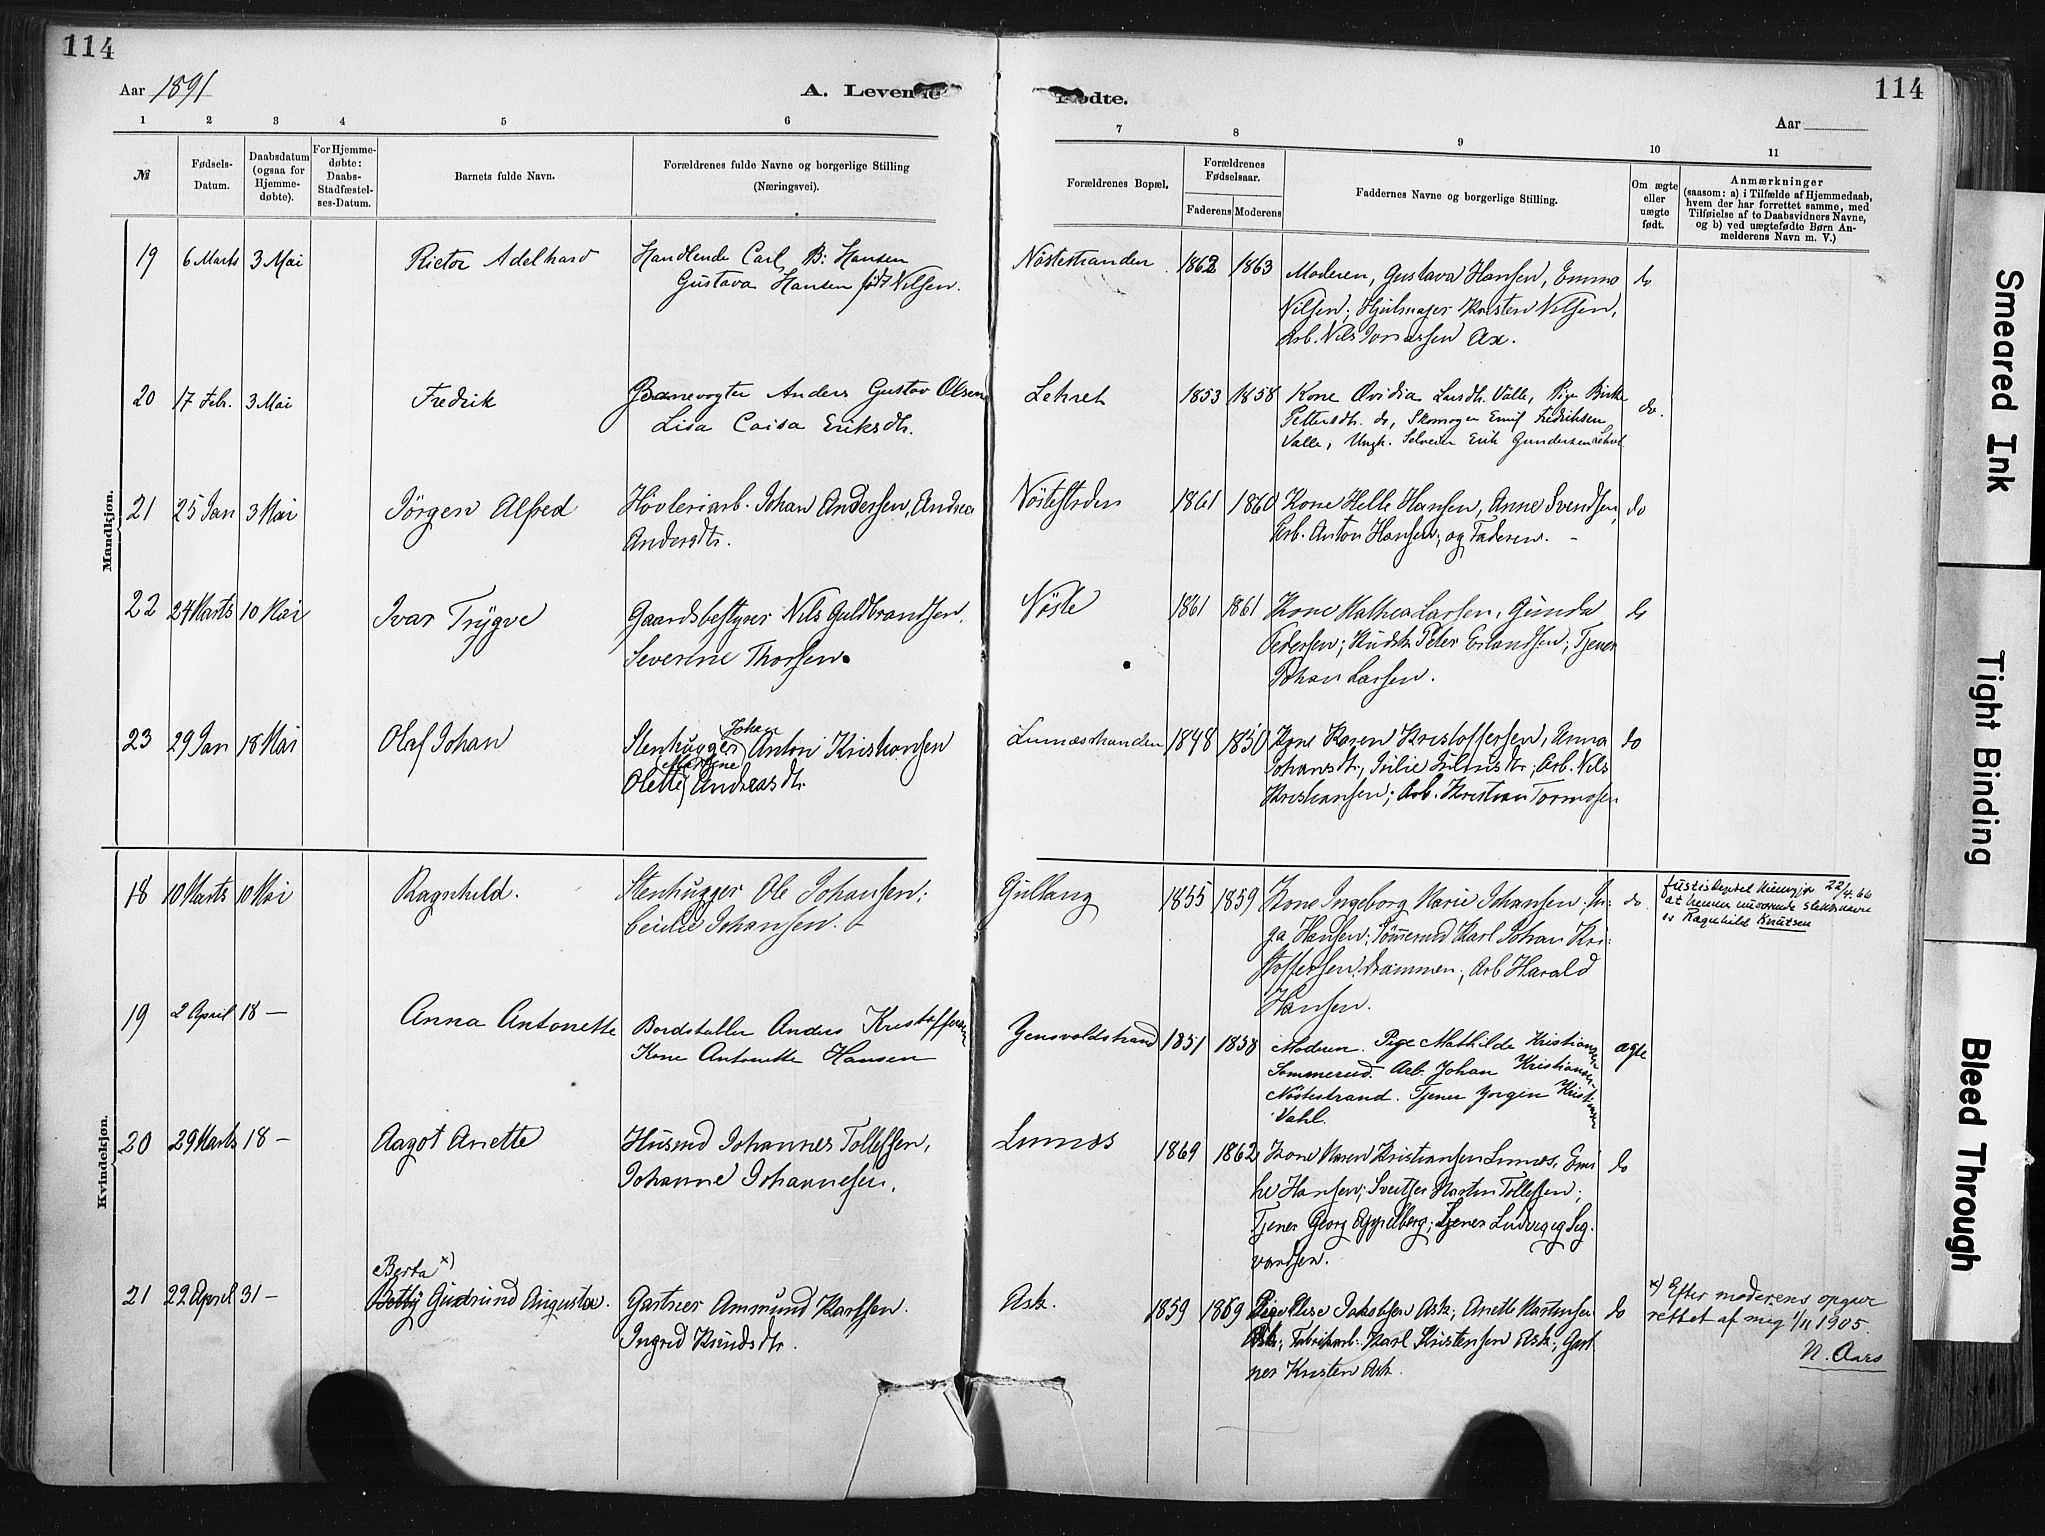 114
114
Aar 1891
A. Levende
Fødte.
Aar
1 2 3 4 5 6
7 8 9 10 11
№
Fødsels-
Datum.
Daabsdatum
(ogsaa for
Hjemme-
døbte).
For Hjemme-
døbte:
Daabs-
Stadfæstel-
ses-Datum.
Barnets fulde Navn.
Forældrenes fulde Navne og borgerlige Stilling
(Næringsvei).
Forældrenes Bopæl.
Forældrenes
Fødselsaar.
Faderens Moderens
Faddernes Navne og borgerlige Stilling.
Om ægte
eller
uægte
født.
Anmærkninger
(saasom: a) i Tilfælde af Hjemmedaab,
hvem der har forrettet samme, med
Tilføielse af to Daabsvidners Navne,
og b) ved uægtefødte Børn An-
melderens Navn m. V.)
Mandkjøn.
19 6 Marts 3 Mai Rietor Adelhard Handlende Carl B. Hansen
Gustava Hansen født Nilsen.
Nøstestranden 1862 1863 Moderen, Gustava Hansen, Emma do
Nilsen; Hjulmager Kristen Nilsen,
Arb. Nils Jonassen Ax.
20 17 Febr. 3 Mai Fredrik Banevogter Anders Gustav Olsen
Lisa Caisa Eriksdtr.
1853 1858 Kone Ovidia Larsdtr. Valle, Pige
Pettersdtr. do, Skomager Emil Fredriksen do.
Valle, Ungk. Selveier Erik Gundersen
21 25 Jan 3 Mai Jörgen Alfred Høvleriarb. Johan Andersen, Andrea
Andersdtr.
1861 1860 Kone Helle Hansen, Anne Svendsen, do
Arb. Anton Hansen, og Faderen. -
22 24 Marts 10 Mai Ivar Trygve Gaardsbestyrer Nils Guldbrandsen.
Severine Thorsen.
Nöste 1861 1861 Kone Mathea Larsen, Gunda do
Pedersen; Kudsk Peter Erlandsen; Tjener
Johan Larsen.
23 29 Jan 18 Mai Olaf Johan Stenhugger Johan Anton Kristiansen
Olette Martine Andreasdtr.
Linnæsstranden 1848 1850 Kone Karen Kristoffersen, Anna do
Johansdtr, Julie Juliusdtr; Arb. Nils
Kristiansen; Arb. Kristian Tormosen
Kvindekjøn.
18 10 Marts 10 Mai Ragnhild. Stenhugger Ole Johansen;
Johansen.
Gullaug 1855 1859 Kone Ingeborg Marie Johansen; In- do.
ga Hansen; Tømmermd Karl Johan Kri-
stoffersen Drammen; Arb Harald
Hansen.
22/4.66
at hennes nuværende slektsnavn
er Ragnhild Knutsen
19 2 April 18 — Anna Antonette Bordstabler Anders Kristoffersen
Kone Antonette Hansen
1851 1858 Moderen. Pige Mathilde Kristiansen ægte
Sommerud. Arb. Johan Kristiansen
Nöstestrand. Tjener Jorgen Kristiansen
Vahl.
20 29 Marts 18 — Aagot Anette Husmd Johannes Tollefsen,
Johanne Johannesen.
Linnæs 1869 1862 Kone Maren Kristiansen Linnæs, Emi- do
lie Hansen; Sveitser Martin Tollefsen;
Tjener Georg Appelberg; Tjener Ludvig Sig-
vardsen.
21 22 April 31 — Berta x)
Betty Gudrund Augusta. Gartner Ammund Karlsen.
Ingrid Knudsdtr.
Ask. 1859 1869 Pige Else Jakobsen Ask; Anette Martinsen do
Ask; Fabrikarb. Karl Kristensen Ask; Gart-
ner Kristen Ask.
x) Efter moderens opgave
rettet af mig 1/11 1905.
N. Aars
Smeared Ink
Tight Binding
Bleed Through